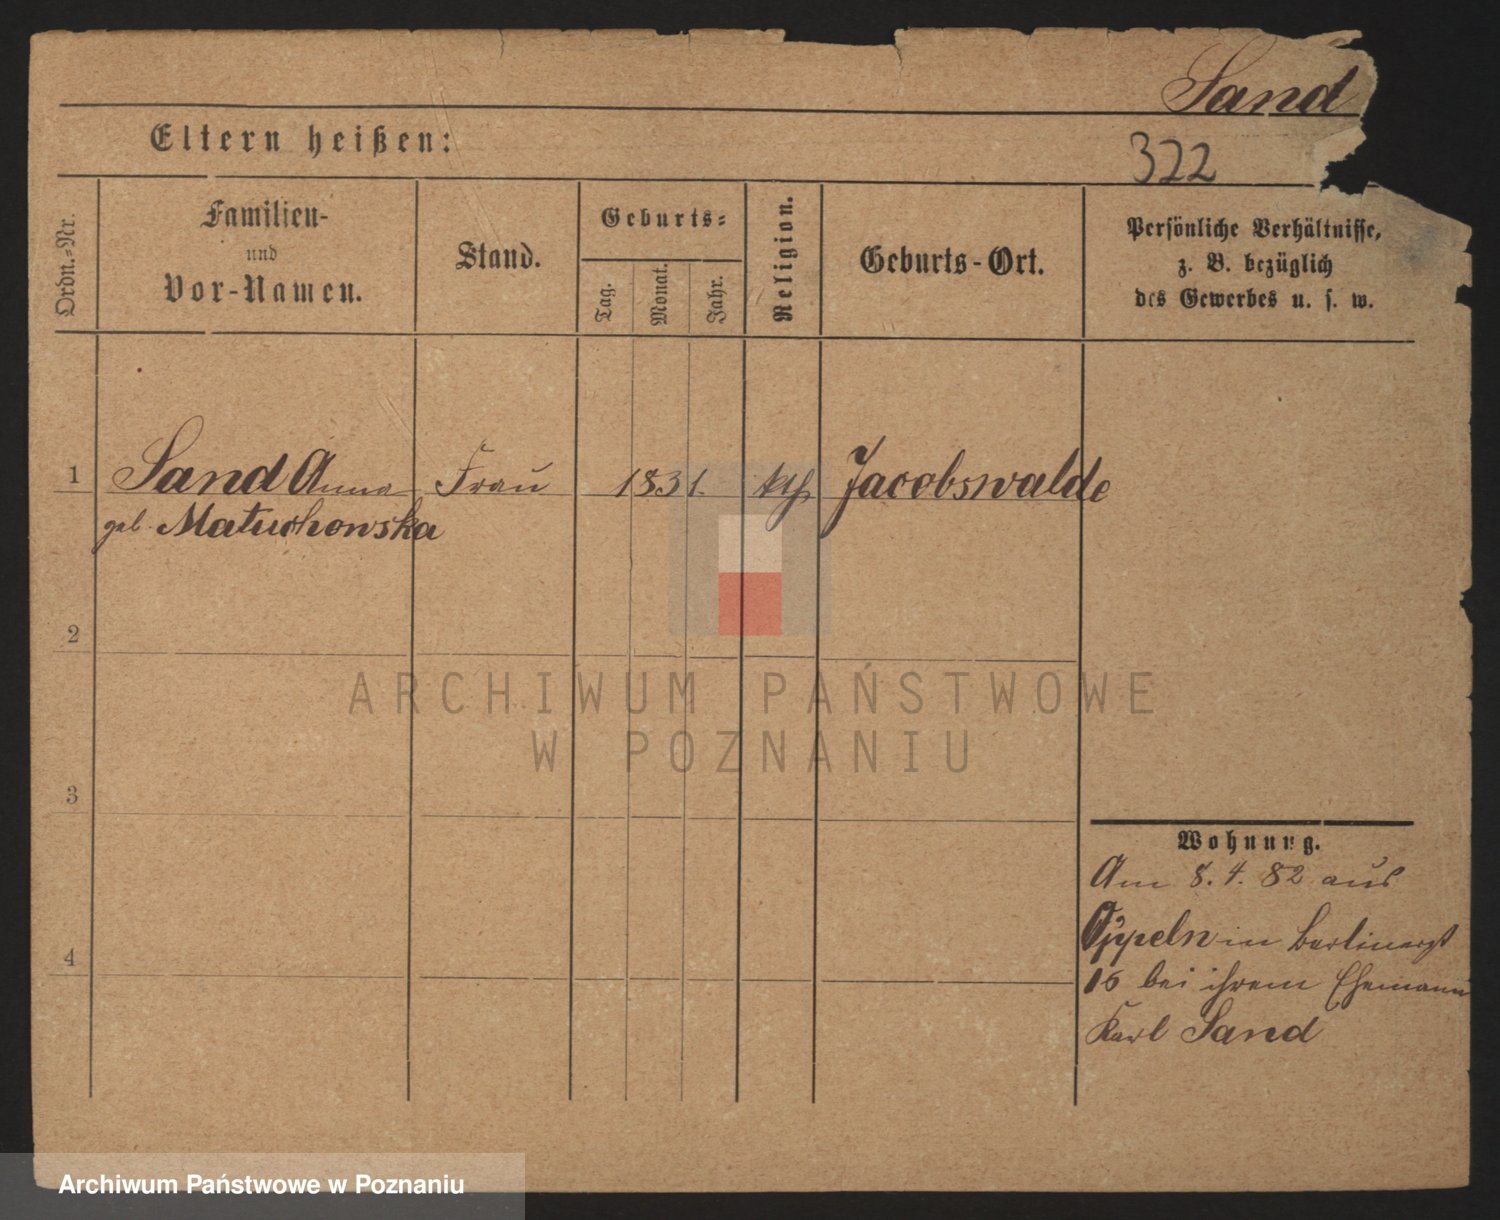 Sand
Eltern heißen:
322
Ordn.-Nr.
Familien-
und
Vor-Namen.
Stand.
Geburts-
Tag.
Monat.
Jahr.
Religion.
Geburts-Ort.
Persönliche Verhältnisse,
z. B. bezüglich
des Gewerbes u. s. w.
1 Sand Anna Frau 1831. kth Jacobswalde
geb. Matuchowska
2
ARCHIWUM PAŃSTWOWE
W POZNANIU
3
Wohnung.
Am 8. 4. 82 aus
Oppeln in Berlinerst
16 bei ihrem Ehemann
Karl Sand
4
Archiwum Państwowe w Poznaniu